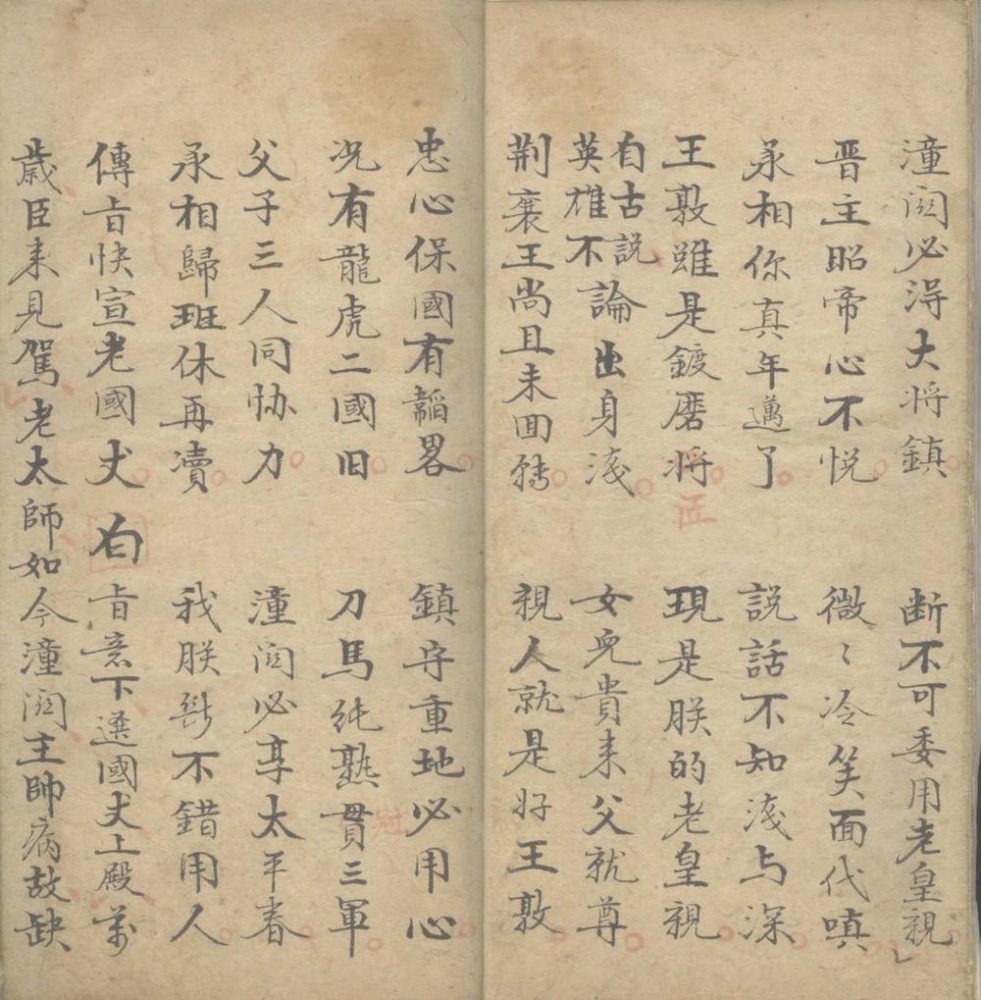 潼関必得大将鎮 断不可委用老皇親
晋主昭帝心不悦 微〻冷笑面代嗔
丞相你真年邁了 説話不知浅与深
王敦雖是鍍磨将 現是朕的老皇親
匠
自古説英雄不論出身浅 女兒貴来父就尊
荆襄王尚且未回轉 親人就是好王敦
忠心保國有韜畧 鎮守重地必用心
况有龍虎二國旧 刀馬純熟貫三軍
冠
父子三人同协力 潼関必享太平春
丞相歸班休再凟 我朕断不錯用人
傳㫖快宣老國丈 白 㫖意下選國丈上殿萬
歳臣来見駕老太師如今潼関主帥病故缺